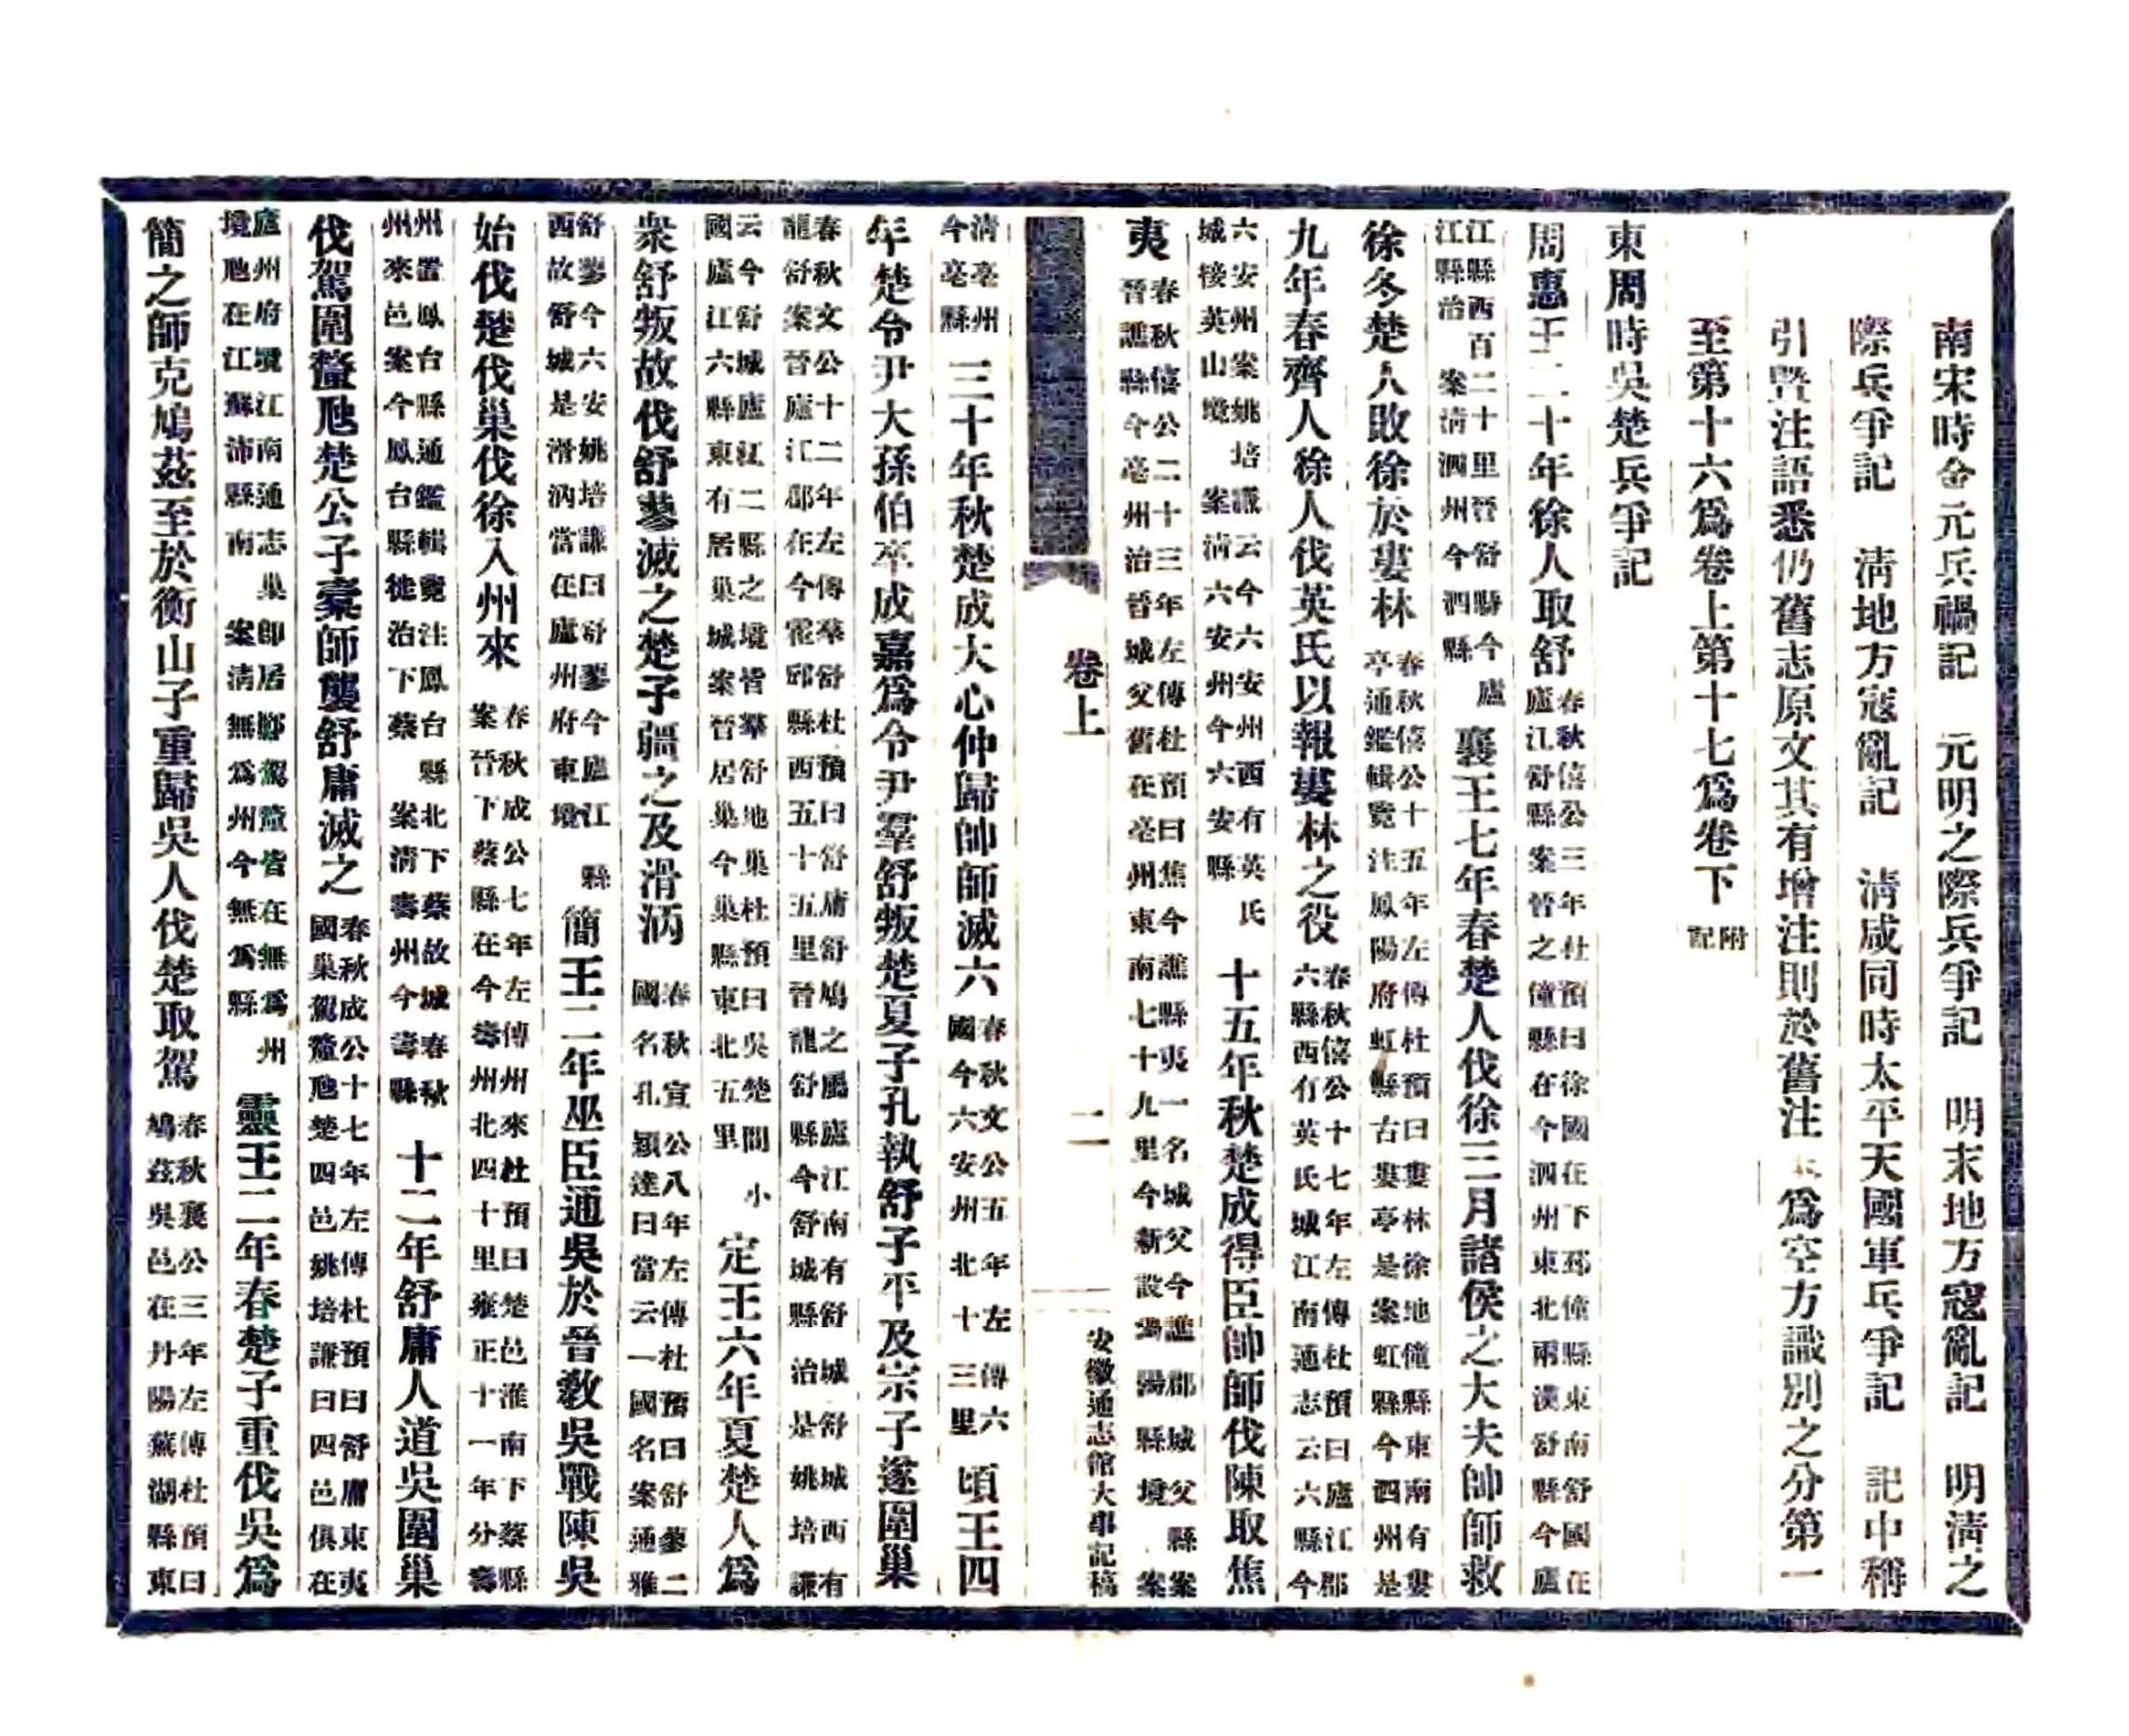 南宋時金元兵禍記　元明之際兵爭記　明末地方寇亂記　明清之
際兵爭記　清地方寇亂記　清咸同時太平天國軍兵爭記　記中稱
引曁注語悉仍舊志原文其有增注則於舊注末爲空方識別之分第一
至第十六爲卷上第十七爲卷下附記
東周時吳楚兵爭記
周惠王二十年徐人取舒春秋僖公三年杜預曰徐國在下邳僮縣東南舒國在廬江舒縣案晉之僮縣在今泗州東北兩漢舒縣今廬
江縣西百二十里晉舒縣今廬江縣治　案清泗州今泗縣　襄王七年春楚人伐徐三月諸侯之大夫帥師救
徐冬楚人敗徐於婁林春秋僖公十五年左傳杜預曰婁林徐地僮縣東南有婁亭通鑑輯覽注鳳陽府虹縣古婁亭是案虹縣今泗州是
九年春齊人徐人伐英氏以報婁林之役春秋僖公十七年左傳杜預曰廬江郡六縣西有英氏城江南通志云六縣今
六安州案姚培謙云今六安州西有英氏城接英山境　案清六安州今六安縣　十五年秋楚成得臣帥師伐陳取焦
夷春秋僖公二十三年左傳杜預曰焦今譙縣夷一名城父今譙郡城父縣案晉譙縣今亳州治晉城父舊在亳州東南七十九里今新設渦陽縣境　案
卷上　二　安徽通志館大事記稿
清亳州今亳縣　三十年秋楚成大心仲歸帥師滅六春秋文公五年左傳六國今六安州北十三里　頃王四
年楚令尹大孫伯卒成嘉爲令尹羣舒叛楚夏子孔執舒子平及宗子遂圍巢
春秋文公十二年左傳羣舒杜預曰舒庸舒鳩之屬廬江南有舒城舒城西有龍舒案晉廬江郡在今霍邱縣西五十五里晉龍舒縣今舒城縣治是姚培謙
云今舒城廬江二縣之境皆羣舒地巢杜預曰吳楚間小國廬江六縣東有居巢城案晉居巢今巢縣東北五里　定王六年夏楚人爲
衆舒叛故伐舒蓼滅之楚子疆之及滑汭春秋宣公八年左傳杜預曰舒蓼二國名孔穎達曰當云一國名案通雅
舒蓼今六安姚培謙曰舒蓼今廬江縣西故舒城是滑汭當在廬州府東境　簡王二年巫臣通吳於晉敎吳戰陳吳
始伐楚伐巢伐徐入州來春秋成公七年左傳州來杜預曰楚邑淮南下蔡縣案晉下蔡縣在今壽州北四十里雍正十一年分壽
州置鳳台縣通鑑輯覽注鳳台縣北下蔡故城春秋州來邑案今鳳台縣徙治下蔡　案清壽州今壽縣　十二年舒庸人道吳圍巢
伐駕圍釐虺楚公子橐師襲舒庸滅之春秋成公十七年左傳杜預曰舒庸東夷國巢駕釐虺楚四邑姚培謙曰四邑俱在
廬州府境江南通志巢卽居鄛駕釐皆在無爲州境虺在江蘇沛縣南　案清無爲州今無爲縣　靈王二年春楚子重伐吳爲
簡之師克鳩茲至於衡山子重歸吳人伐楚取駕春秋襄公三年左傳杜預曰鳩茲吳邑在丹陽蕪湖縣東